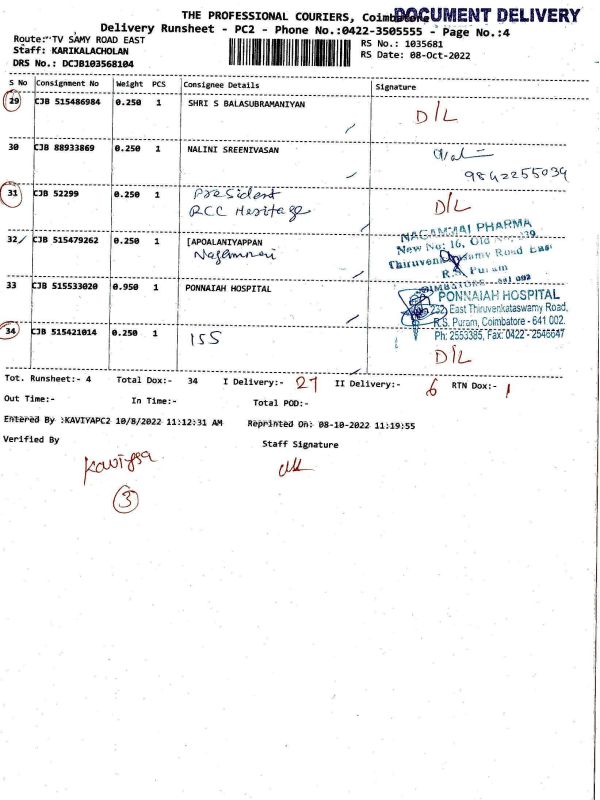 THE PROFESSIONAL COURIERS, Coimbatore
DOCUMENT DELIVERY
Delivery Runsheet - PC2 - Phone No.:0422-3505555 - Page No.:4
Route: TV SAMY ROAD EAST
RS No.: 1035681
Staff: KARIKALACHOLAN
RS Date: 08-Oct-2022
DRS No.: DCJB103568104
S No Consignment No Weight PCS Consignee Details Signature
29 CJB 515486984 0.250 1 SHRI S BALASUBRAMANIYAN D/L
30 CJB 88933869 0.250 1 NALINI SREENIVASAN
9842255034
31 CJB 52299 0.250 1 President
RCC Heritage D/L
32 CJB 515479262 0.250 1 [APOALANIYAPPAN
Nagammai
NAGAMMAI PHARMA
New No: 16, Old No.
Thiruvenkatasamy Road East
R.S. Puram
COIMBATORE - 641 002
33 CJB 515533020 0.950 1 PONNAIAH HOSPITAL
PONNAIAH HOSPITAL
East Thiruvenkataswamy Road,
R.S. Puram, Coimbatore - 641 002.
Ph: 2553385, Fax: 0422 - 2546647
34 CJB 515421014 0.250 1 ISS D/L
Tot. Runsheet:- 4 Total Dox:- 34 I Delivery:- 27 II Delivery:- 6 RTN Dox:- 1
Out Time:- In Time:- Total POD:-
Entered By :KAVIYAPC2 10/8/2022 11:12:31 AM Reprinted On: 08-10-2022 11:19:55
Verified By Staff Signature
Kaviyaa
3